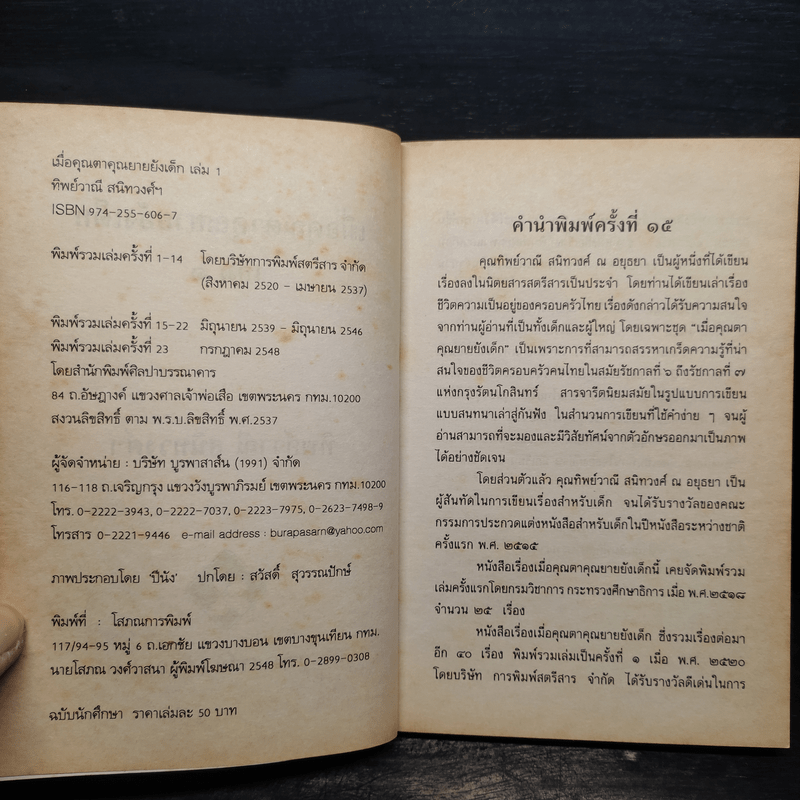 เมื่อคุณตาคุณยายยังเด็ก เล่ม 1
ทิพย์วาณี สนิทวงศ์ฯ
ISBN 974-255-606-7
พิมพ์รวมเล่มครั้งที่ 1-14 โดยบริษัทการพิมพ์สตรีสาร จำกัด
(สิงหาคม 2520 - เมษายน 2537)
พิมพ์รวมเล่มครั้งที่ 15-22 มิถุนายน 2539 - มิถุนายน 2546
พิมพ์รวมเล่มครั้งที่ 23 กรกฎาคม 2548
โดยสำนักพิมพ์ศิลปาบรรณาคาร
84 ถ.อัษฎางค์ แขวงศาลเจ้าพ่อเสือ เขตพระนคร กทม.10200
สงวนลิขสิทธิ์ ตาม พ.ร.บ.ลิขสิทธิ์ พ.ศ.2537
ผู้จัดจำหน่าย : บริษัท บูรพาสาส์น (1991) จำกัด
116-118 ถ.เจริญกรุง แขวงวังบูรพาภิรมย์ เขตพระนคร กทม.10200
โทร. 0-2222-3943, 0-2222-7037, 0-2223-7975, 0-2623-7498-9
โทรสาร 0-2221-9446 e-mail address : burapasarn@yahoo.com
ภาพประกอบโดย 'ปีนัง' ปกโดย : สวัสดิ์ สุวรรณปักษ์
พิมพ์ที่ : โสภณการพิมพ์
117/94-95 หมู่ 6 ถ.เอกชัย แขวงบางบอน เขตบางขุนเทียน กทม.
นายโสภณ วงศ์วาสนา ผู้พิมพ์โฆษณา 2548 โทร. 0-2899-0308
ฉบับนักศึกษา ราคาเล่มละ 50 บาท
คำนำพิมพ์ครั้งที่ ๑๕
คุณทิพย์วาณี สนิทวงศ์ ณ อยุธยา เป็นผู้หนึ่งที่ได้เขียน
เรื่องลงในนิตยสารสตรีสารเป็นประจำ โดยท่านได้เขียนเล่าเรื่อง
ชีวิตความเป็นอยู่ของครอบครัวไทย เรื่องดังกล่าวได้รับความสนใจ
จากท่านผู้อ่านที่เป็นทั้งเด็กและผู้ใหญ่ โดยเฉพาะชุด "เมื่อคุณตา
คุณยายยังเด็ก" เป็นเพราะการที่สามารถสรรหาเกร็ดความรู้ที่น่า
สนใจของชีวิตครอบครัวคนไทยในสมัยรัชกาลที่ ๖ ถึงรัชกาลที่ ๗
แห่งกรุงรัตนโกสินทร์ สารจารีตนิยมสมัยในรูปแบบการเขียน
แบบสนทนาเล่าสู่กันฟัง ในสำนวนการเขียนที่ใช้คำง่าย ๆ จนผู้
อ่านสามารถที่จะมองและมีวิสัยทัศน์จากตัวอักษรออกมาเป็นภาพ
ได้อย่างชัดเจน
โดยส่วนตัวแล้ว คุณทิพย์วาณี สนิทวงศ์ ณ อยุธยา เป็น
ผู้สันทัดในการเขียนเรื่องสำหรับเด็ก จนได้รับรางวัลของคณะ
กรรมการประกวดแต่งหนังสือสำหรับเด็กในปีหนังสือระหว่างชาติ
ครั้งแรก พ.ศ. ๒๕๑๕
หนังสือเรื่องเมื่อคุณตาคุณยายยังเด็กนี้ เคยจัดพิมพ์รวม
เล่มครั้งแรกโดยกรมวิชาการ กระทรวงศึกษาธิการ เมื่อ พ.ศ.๒๕๑๘
จำนวน ๒๕ เรื่อง
หนังสือเรื่องเมื่อคุณตาคุณยายยังเด็ก ซึ่งรวมเรื่องต่อมา
อีก ๔๐ เรื่อง พิมพ์รวมเล่มเป็นครั้งที่ ๑ เมื่อ พ.ศ. ๒๕๒๐
โดยบริษัท การพิมพ์สตรีสาร จำกัด ได้รับรางวัลดีเด่นในการ